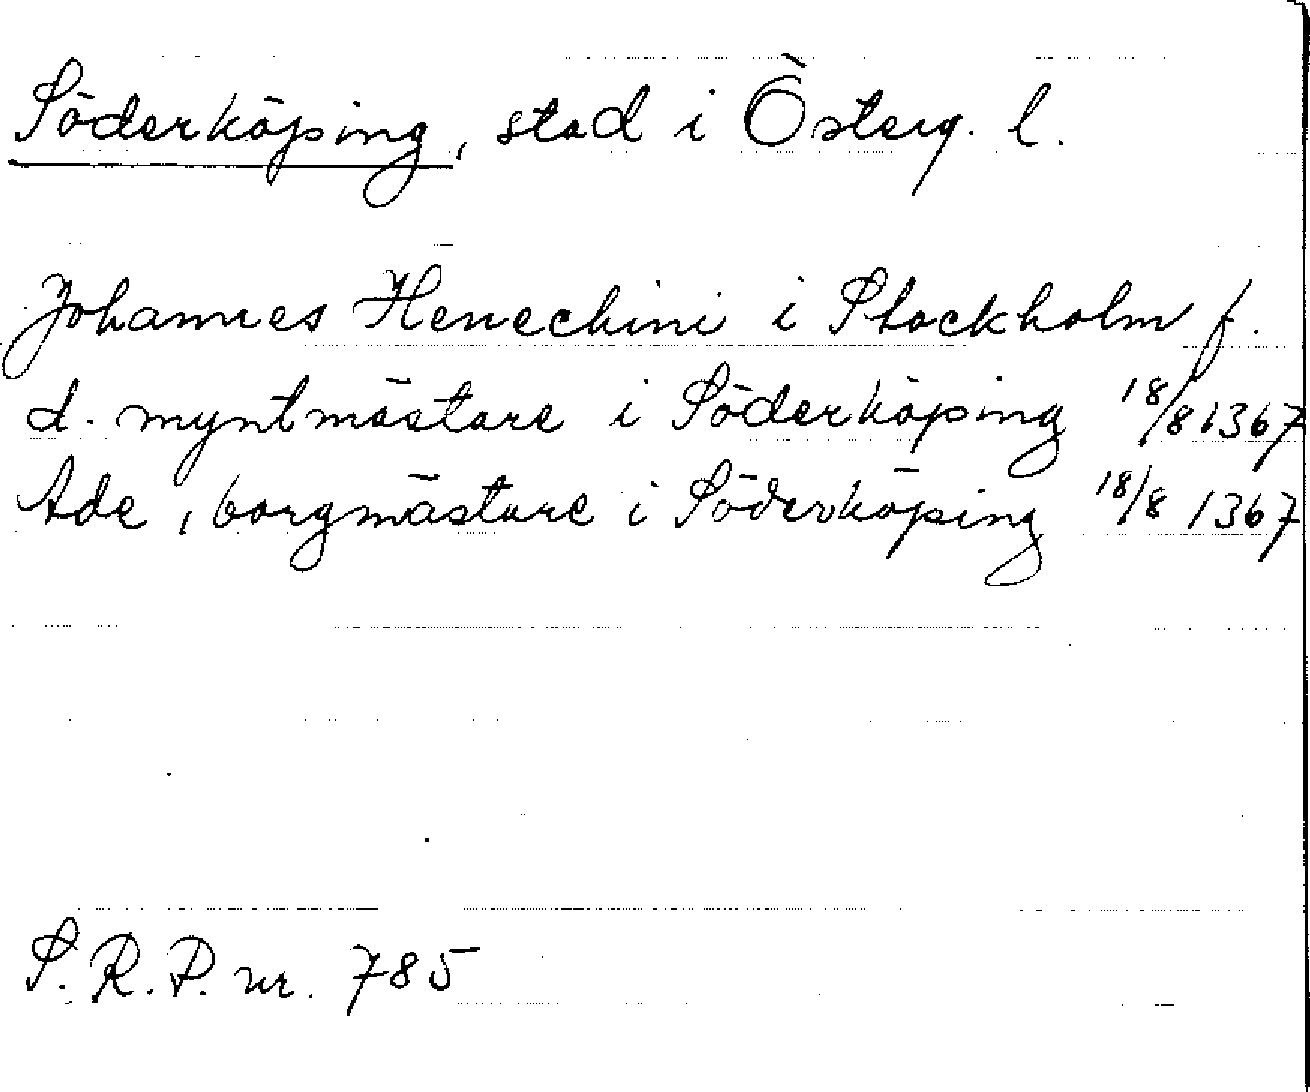 Söderköping, stad i Österg. l.
Johannes Henechini i Stockholm f.
d. myntmästare i Söderköping 18/8 1367
Ade, borgmästare i Söderköping 18/8 1367
S. R. P. nr. 785